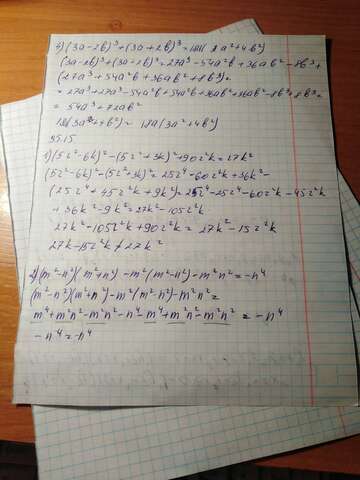 3) (3a-2b)³+(3a+2b)³=18a( a²+4b²)
(3a-2b)³+(3a-2b)³=27a³-54a²b+36ab²-8b³+
(27a³+54a²b+36ab²+8b³)=
=27a³+27a³-54a²b+54a²b+36ab²+36ab²-8b³+8b³=
=54a³+72ab²
18a(3a²+4b²)=18a(3a²+4b²)
35.15
1) (5z²-6k)²-(5z²+3k)²+90z²k=27k²
(5z²-6k)²-(5z²+3k)²=25z⁴-60z²k+36k²-
(25z⁴+45z²k+9k²)=25z⁴-25z⁴-60z²k-45z²k
+36k²-9k²=27k²-105z²k
27k²-105z²k+90z²k=27k²-15z²k
27k-15z²k≠27k²
2) (m²-n²)(m²+n²)-m²(m²-n²)-m²n²=-n⁴
(m²-n²)(m²+n²)-m²(m²-n²)-m²n²=
m⁴+m²n²-m²n²-n⁴-m⁴+m²n²-m²n²=-n⁴
-n⁴=-n⁴